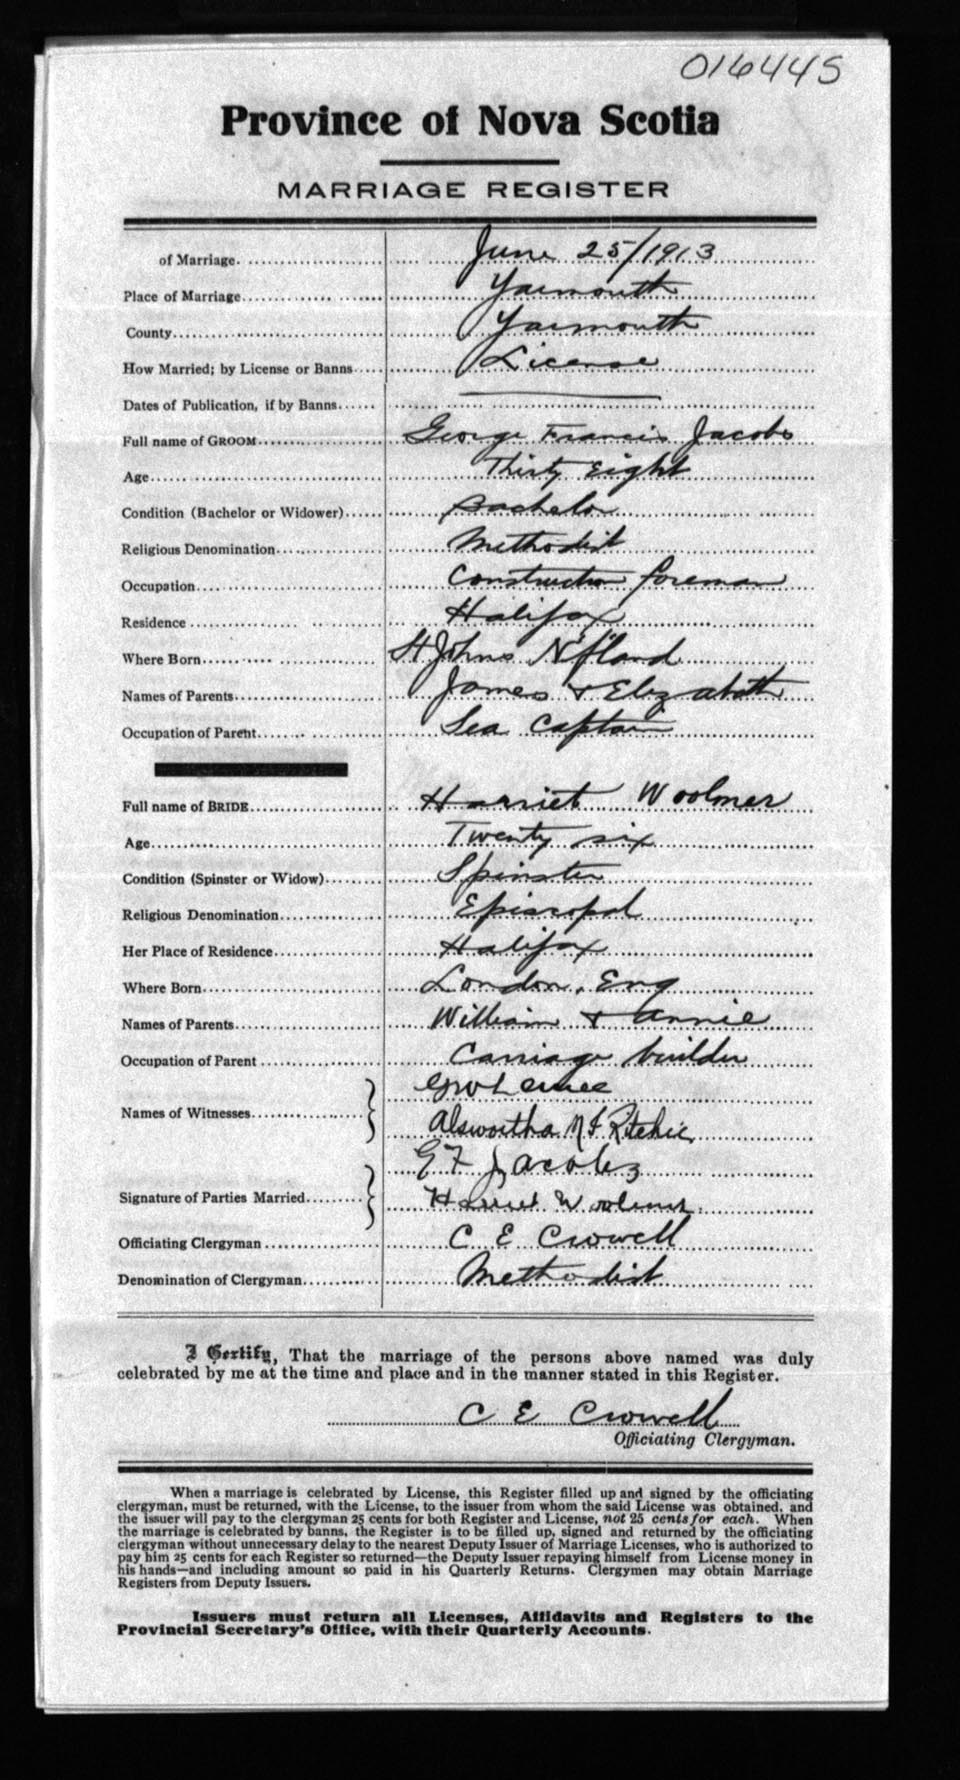 016445
Province of Nova Scotia
MARRIAGE REGISTER
of Marriage. June 25/1913
Place of Marriage Yarmouth
County Yarmouth
How Married; by License or Banns License
Dates of Publication, if by Banns
Full name of GROOM George Francis Jacobs
Age Thirty Eight
Condition (Bachelor or Widower) Bachelor
Religious Denomination Methodist
Occupation Construction foreman
Residence Halifax
Where Born St Johns N'f'land
Names of Parents James & Elizabeth
Occupation of Parent Sea Captain
Full name of BRIDE Harriet Woolmer
Age Twenty six
Condition (Spinster or Widow) Spinster
Religious Denomination Episcopal
Her Place of Residence Halifax
Where Born London, Eng
Names of Parents William & Annie
Occupation of Parent Carriage builder
Names of Witnesses
Ritchie
G F Jacobs
Signature of Parties Married Harriet Woolmer
Officiating Clergyman C E Crowell
Denomination of Clergyman Methodist
I Certify, That the marriage of the persons above named was duly
celebrated by me at the time and place and in the manner stated in this Register.
C E Crowell
Officiating Clergyman.
When a marriage is celebrated by License, this Register filled up and signed by the officiating
clergyman, must be returned, with the License, to the issuer from whom the said License was obtained, and
the issuer will pay to the clergyman 25 cents for both Register and License, not 25 cents for each. When
the marriage is celebrated by banns, the Register is to be filled up, signed and returned by the officiating
clergyman without unnecessary delay to the nearest Deputy Issuer of Marriage Licenses, who is authorized to
pay him 25 cents for each Register so returned—the Deputy Issuer repaying himself from License money in
his hands—and including amount so paid in his Quarterly Returns. Clergymen may obtain Marriage
Registers from Deputy Issuers.
Issuers must return all Licenses, Affidavits and Registers to the
Provincial Secretary's Office, with their Quarterly Accounts.